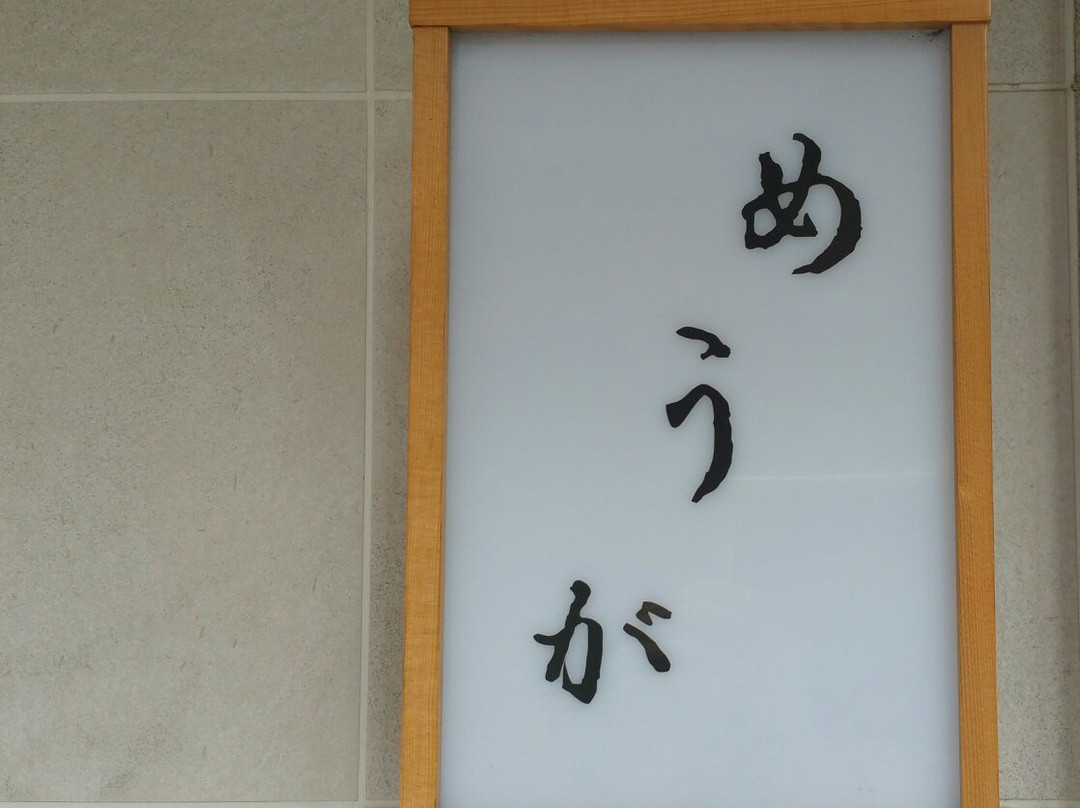 めうが